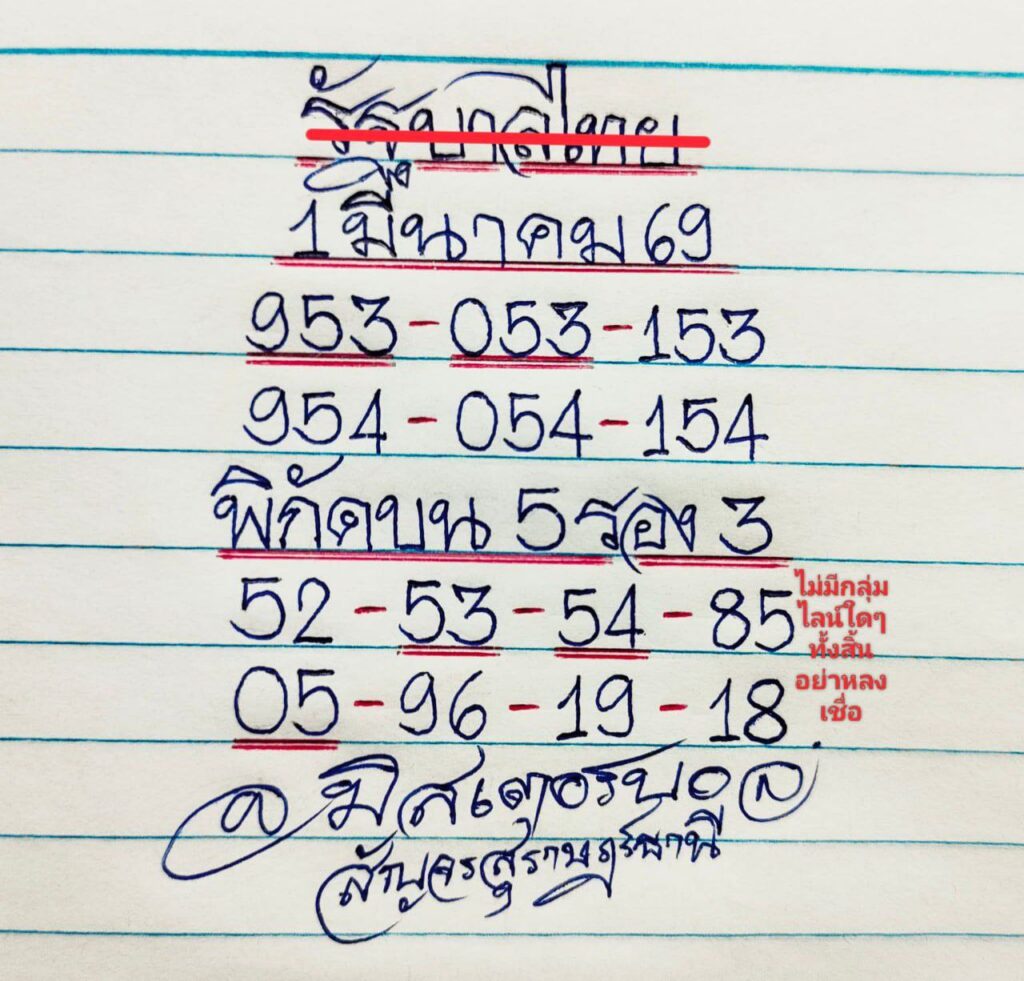 รัฐบาลไทย
1 มีนาคม 69
953-053-153
954-054-154
พิกัดบน 5 รอง 3
52-53-54-85
05-96-19-18.
ไม่มีกลุ่ม
ไลน์ใดๆ
ทั้งสิ้น
อย่าหลง
เชื่อ
มิสเตอร์
สัญจรสุราษฎร์ธานี